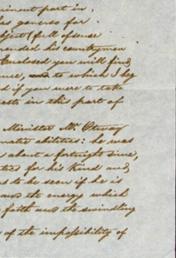 part in,
generous for
full of sense
his countrymen
Enclosed you will find
and to which I beg
if you were to take
in this part of
Minister Mr. Otway
abilities: he was
about a fortnight since,
for his kind and
to be seen if he is
and the energy which
faith and the swindling
of the impossibility of